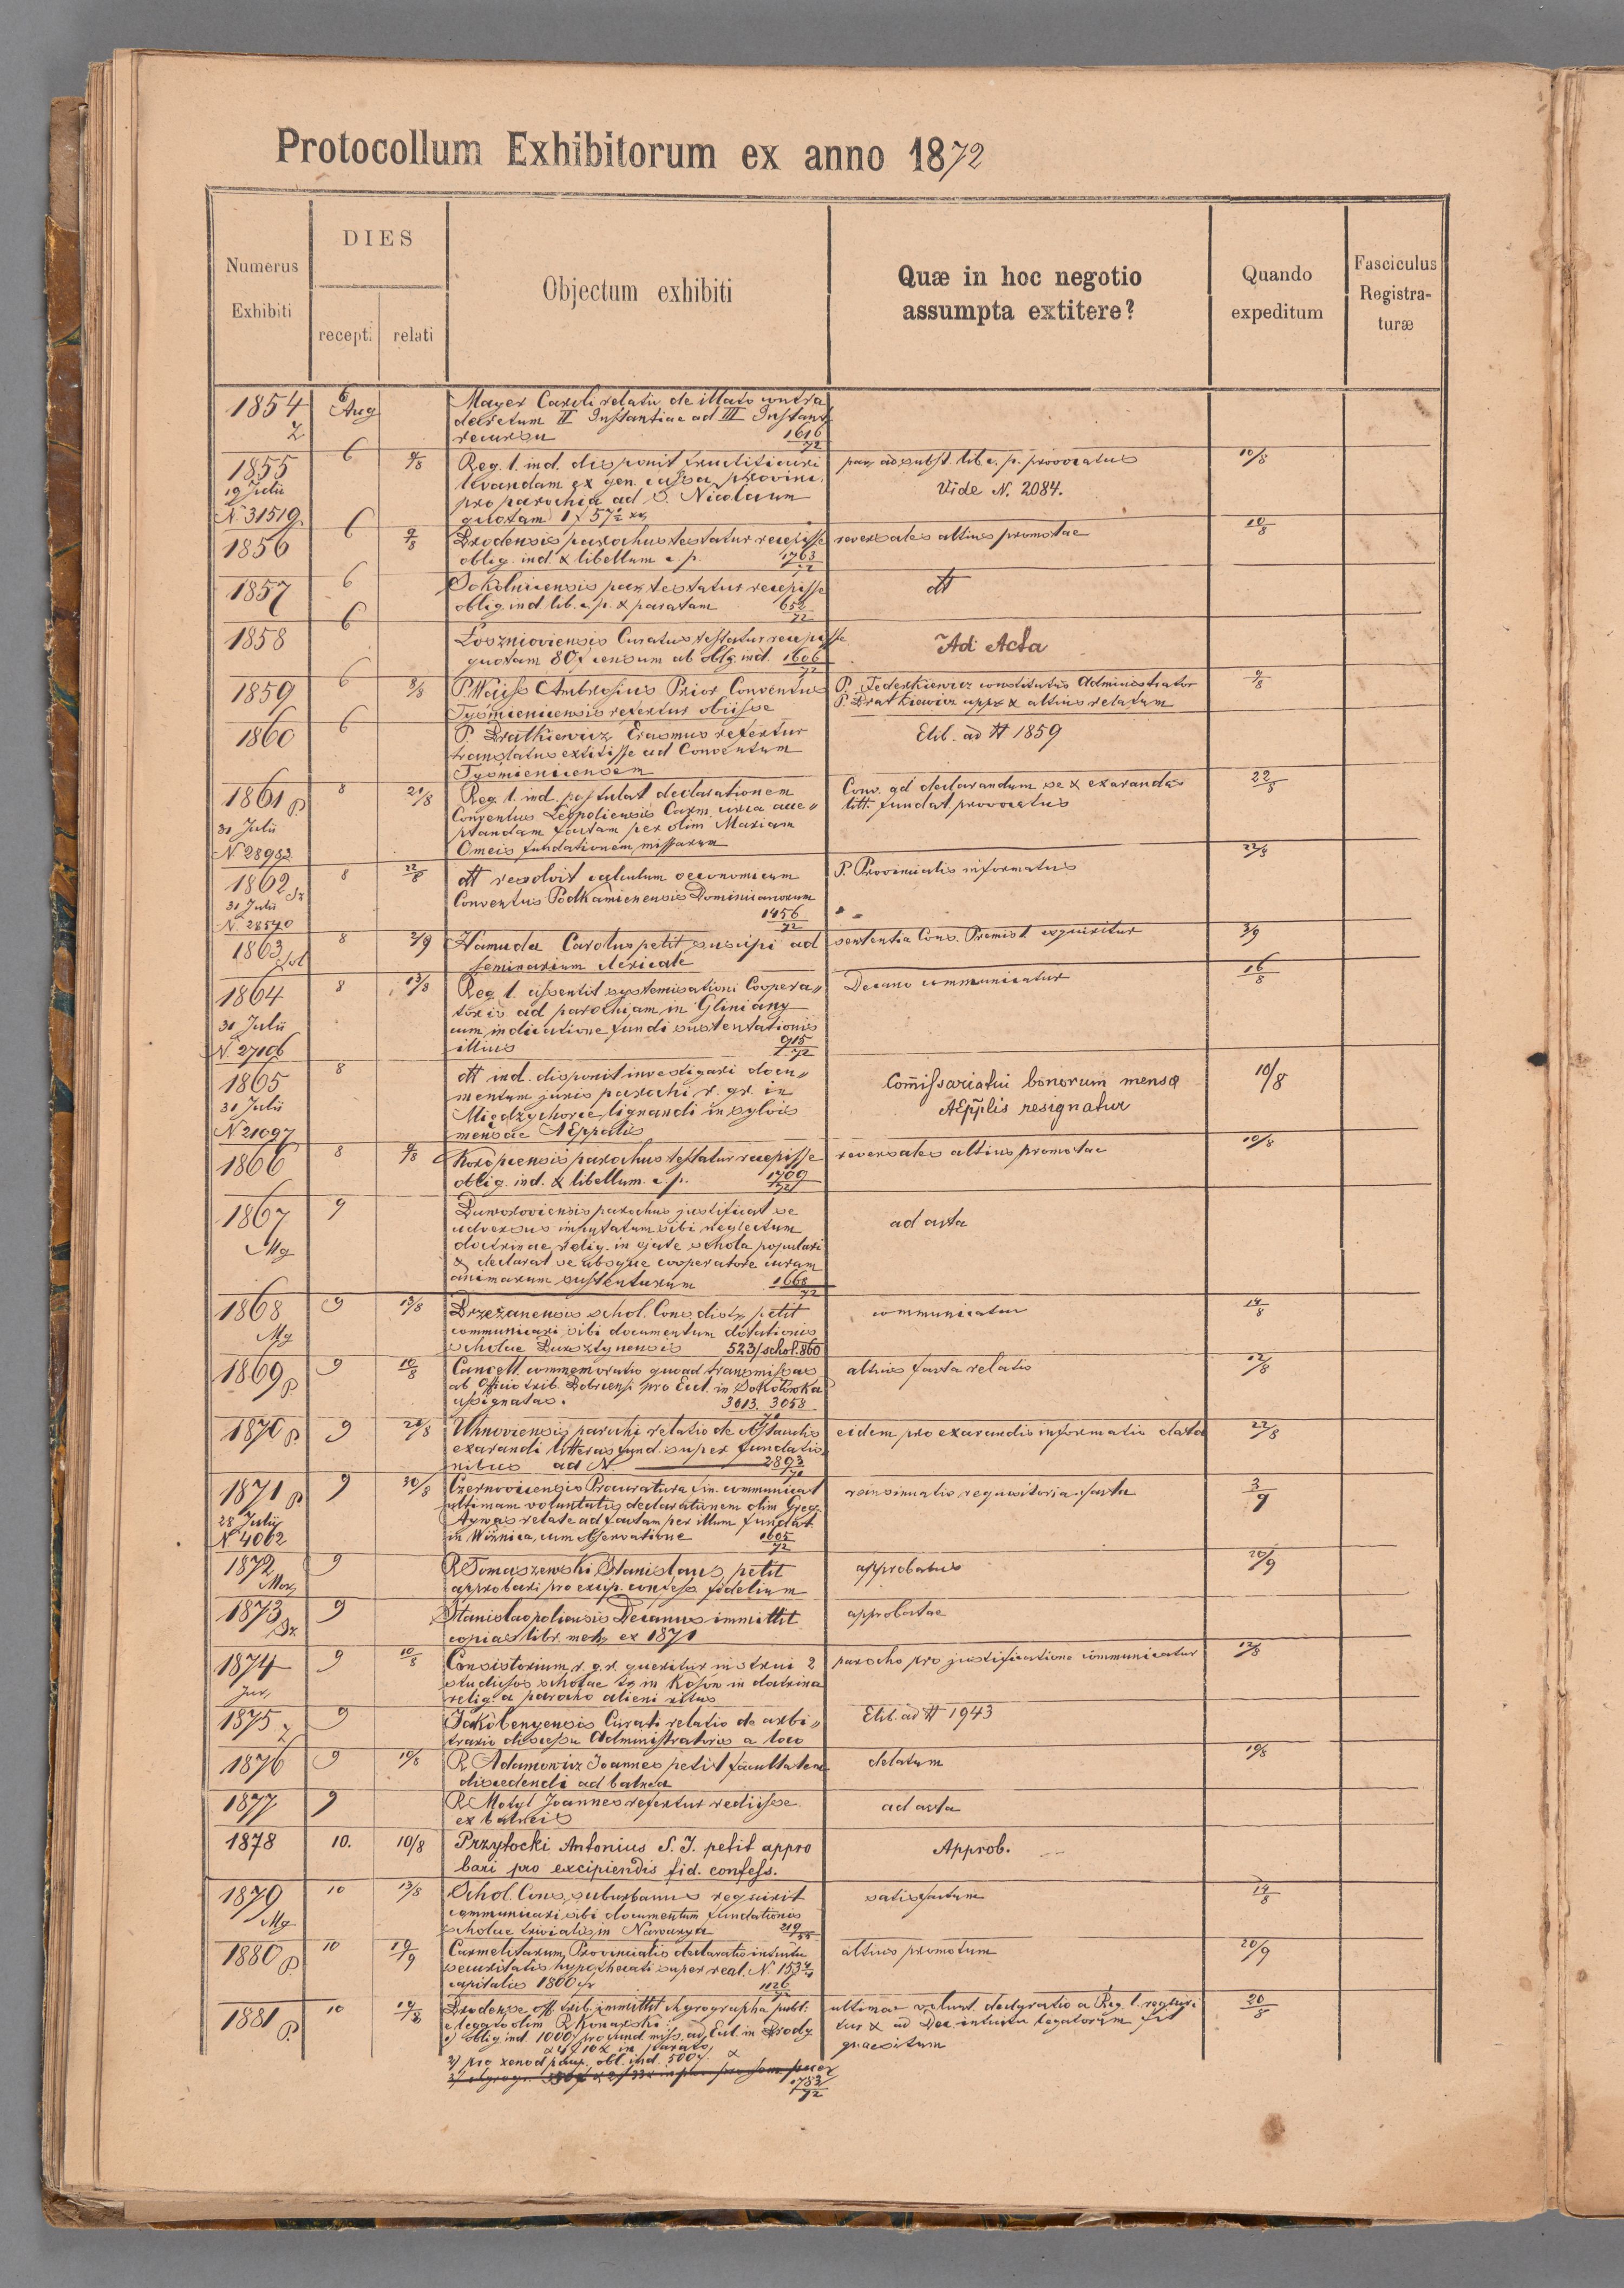 Protocollum Exhibitorum ex anno 1872
Numerus Exhibiti
DIES
recept. relati
Objectum exhibiti
Quæ in hoc negotio
assumpta extitere?
Quando
expeditum
Fasciculus
Registra-
turæ
1854 6 Aug Mayer Caroli relatio de illato contra
decretum II Instantiae ad III Instant
recursu 1616/72
1855 6 9/8 Reg. l. ind. disponit fructificari par. ad subst. lib. c. p. provocatus 10/8
19 Julii levandam ex gen. cassa provinc. Vide N. 2084.
N. 31519 pro parochia ad S. Nicolaum
quotam 1 f 57½ xr
1856 6 9/8 Brodensis parochus testatur recepisse reversales altius promotae 10/8
oblig. ind. & libellum c. p. 1763/72
1857 6 Sokolnicensis par. testatur recepisse dtt
oblig. ind. lib. c. p. & paratam 652/72
1858 6 Łoszniowiensis Curatus testatur recepisse Ad Acta
quotam 80 f censum ab oblg. ind. 1606/72
1859 6 8/8 P. Waiss Ambrosius Prior Conventus P. Federkiewicz constitutus Administrator 9/8
Tyśmienicensis refertur obiisse P. Bratkiewicz appr. & altius relatum
1860 6 P. Bratkiewicz Erasmus refertur Elib. ad N 1859
translatus extitisse ad Conventum
Tyśmienicensem
1861 p 8 21/8 Reg. l. ind. postulat declarationem Conv. ad declarandum se & exarandas 22/8
31 Julii Conventus Leopoliensis Carm. circa acce- litt. fundat. provocatus
N. 28982 ptandam factam per olim Mariam
Omeis fundationem missarum
1862 8 22/8 dtt resolvit calculum oeconomicum P. Provincialis informatus 22/8
31 Julii Conventus Podkamienensis Dominicanorum
N. 28540 1456/72
1863 8 2/9 Hamuda Carolus petit suscipi ad sententia Cons. Premisl. exquiritur 3/9
seminarium clericale
1864 8 13/8 Reg. l. assentit systemisationi Coopera- Decano communicatur 16/8
31 Julii toris ad parochiam in Gliniany
N. 27106 cum indicatione fundi sustentationis
illius 915/72
1865 8 dtt ind. disponit investigari docu- Com̃issariatui bonorum mensæ 10/8
31 Julii mentum juris parochi r. gr. in AEpp̃lis resignatur
N. 21097 Międzyhorce lignandi in sylvis
mensae AEppalis
1866 8 9/8 Koropiecensis parochus testatur recepisse reversales altius promotae 10/8
oblig. ind. & libellum c. p. 1709/72
1867 9 parochus justificat se ad acta
Mg adversus imputatum sibi neglectum
doctrinae relig. in ejate schola populari
& declarat se absque cooperatore curam
animarum sustenturum 1668/72
1868 9 13/8 Brzeżanensis schol. Cons. distr. petit communicatur 14/8
Mg communicari sibi documentum dotationis
scholae Bursztynensis 523/schol. 860
1869 p 9 10/8 Cancell. commemoratio quoad transmissas altius facta relatio 12/8
ab Officio trib. Bobrcensi pro Eccl. in Sokołówka
assignatas. 3013. 3058
1870 p 9 21/8 Uhnoviensis parochi relatio de obstaculis eidem pro exarandis informatio data 22/8
exarandi litteras fund. super fundatio-
nibus ad N. 2893/70
1871 p 9 30/8 Czernovicensis Procuratura fin. communicat reinsinuatio requisitoria facta 3/9
28 Julii ultimam voluntatis declarationem olim Greg.
N 4062 Aywas relate ad factam per illum fundat.
in Wiżnica, cum observatione 1605/72
1872 9 R. Tomaszewski Stanislaus petit approbatus 20/9
approbari pro excip. confess. fidelium
1873 9 Stanislaopoliensis Decanus immittit approbatae
copias libr. metr. ex 1871
1874 9 10/8 Consistorium r. gr. queritur instrui 2 parocho pro justificatione communicatur 12/8
Jur. studiosos scholae tr. in Kosów in doctrina
relig. a parocho alieni ritus
1875 9 Jakóbenyensis Curati relatio de arbi- Elib. ad N 1943
trario discessu Administratoris a loco
1876 9 10/8 R. Adamowicz Joannes petit facultatem delatum 10/8
discedendi ad balnea
1877 9 R. Motyl Joannes refertur rediisse ad acta
ex balneis
1878 10. 10/8 Przyłocki Antonius S. J. petit appro Approb.
bari pro excipiendis fid. confess.
1879 10 13/8 Schol. Cons. suburbanus requirit satisfactum 14/8
Mg communicari sibi documentum fundationis
scholae trivialis in Nawarya 219/55
1880 p 10 19/9 Carmelitarum Provincialis declaratio intuitu altius promotum 20/9
securitatis hypothecati super real. N. 153 4/4
capitalis 1800 fr 1126/72
1881 p. 10 19/8 Brodense off. trib. immittit chyrographa publ. ultimae volunt. declaratio a Reg. l. requiri 20/8
e legato olim R. Konarski: tur & ad Dec. intuitu legatorum fit
1) oblig. ind. 1000 f pro fund. miss. ad Eccl. in Brody quaesitum
2) pro xenod. paup. obl. ind. 500 f. &
1782/72